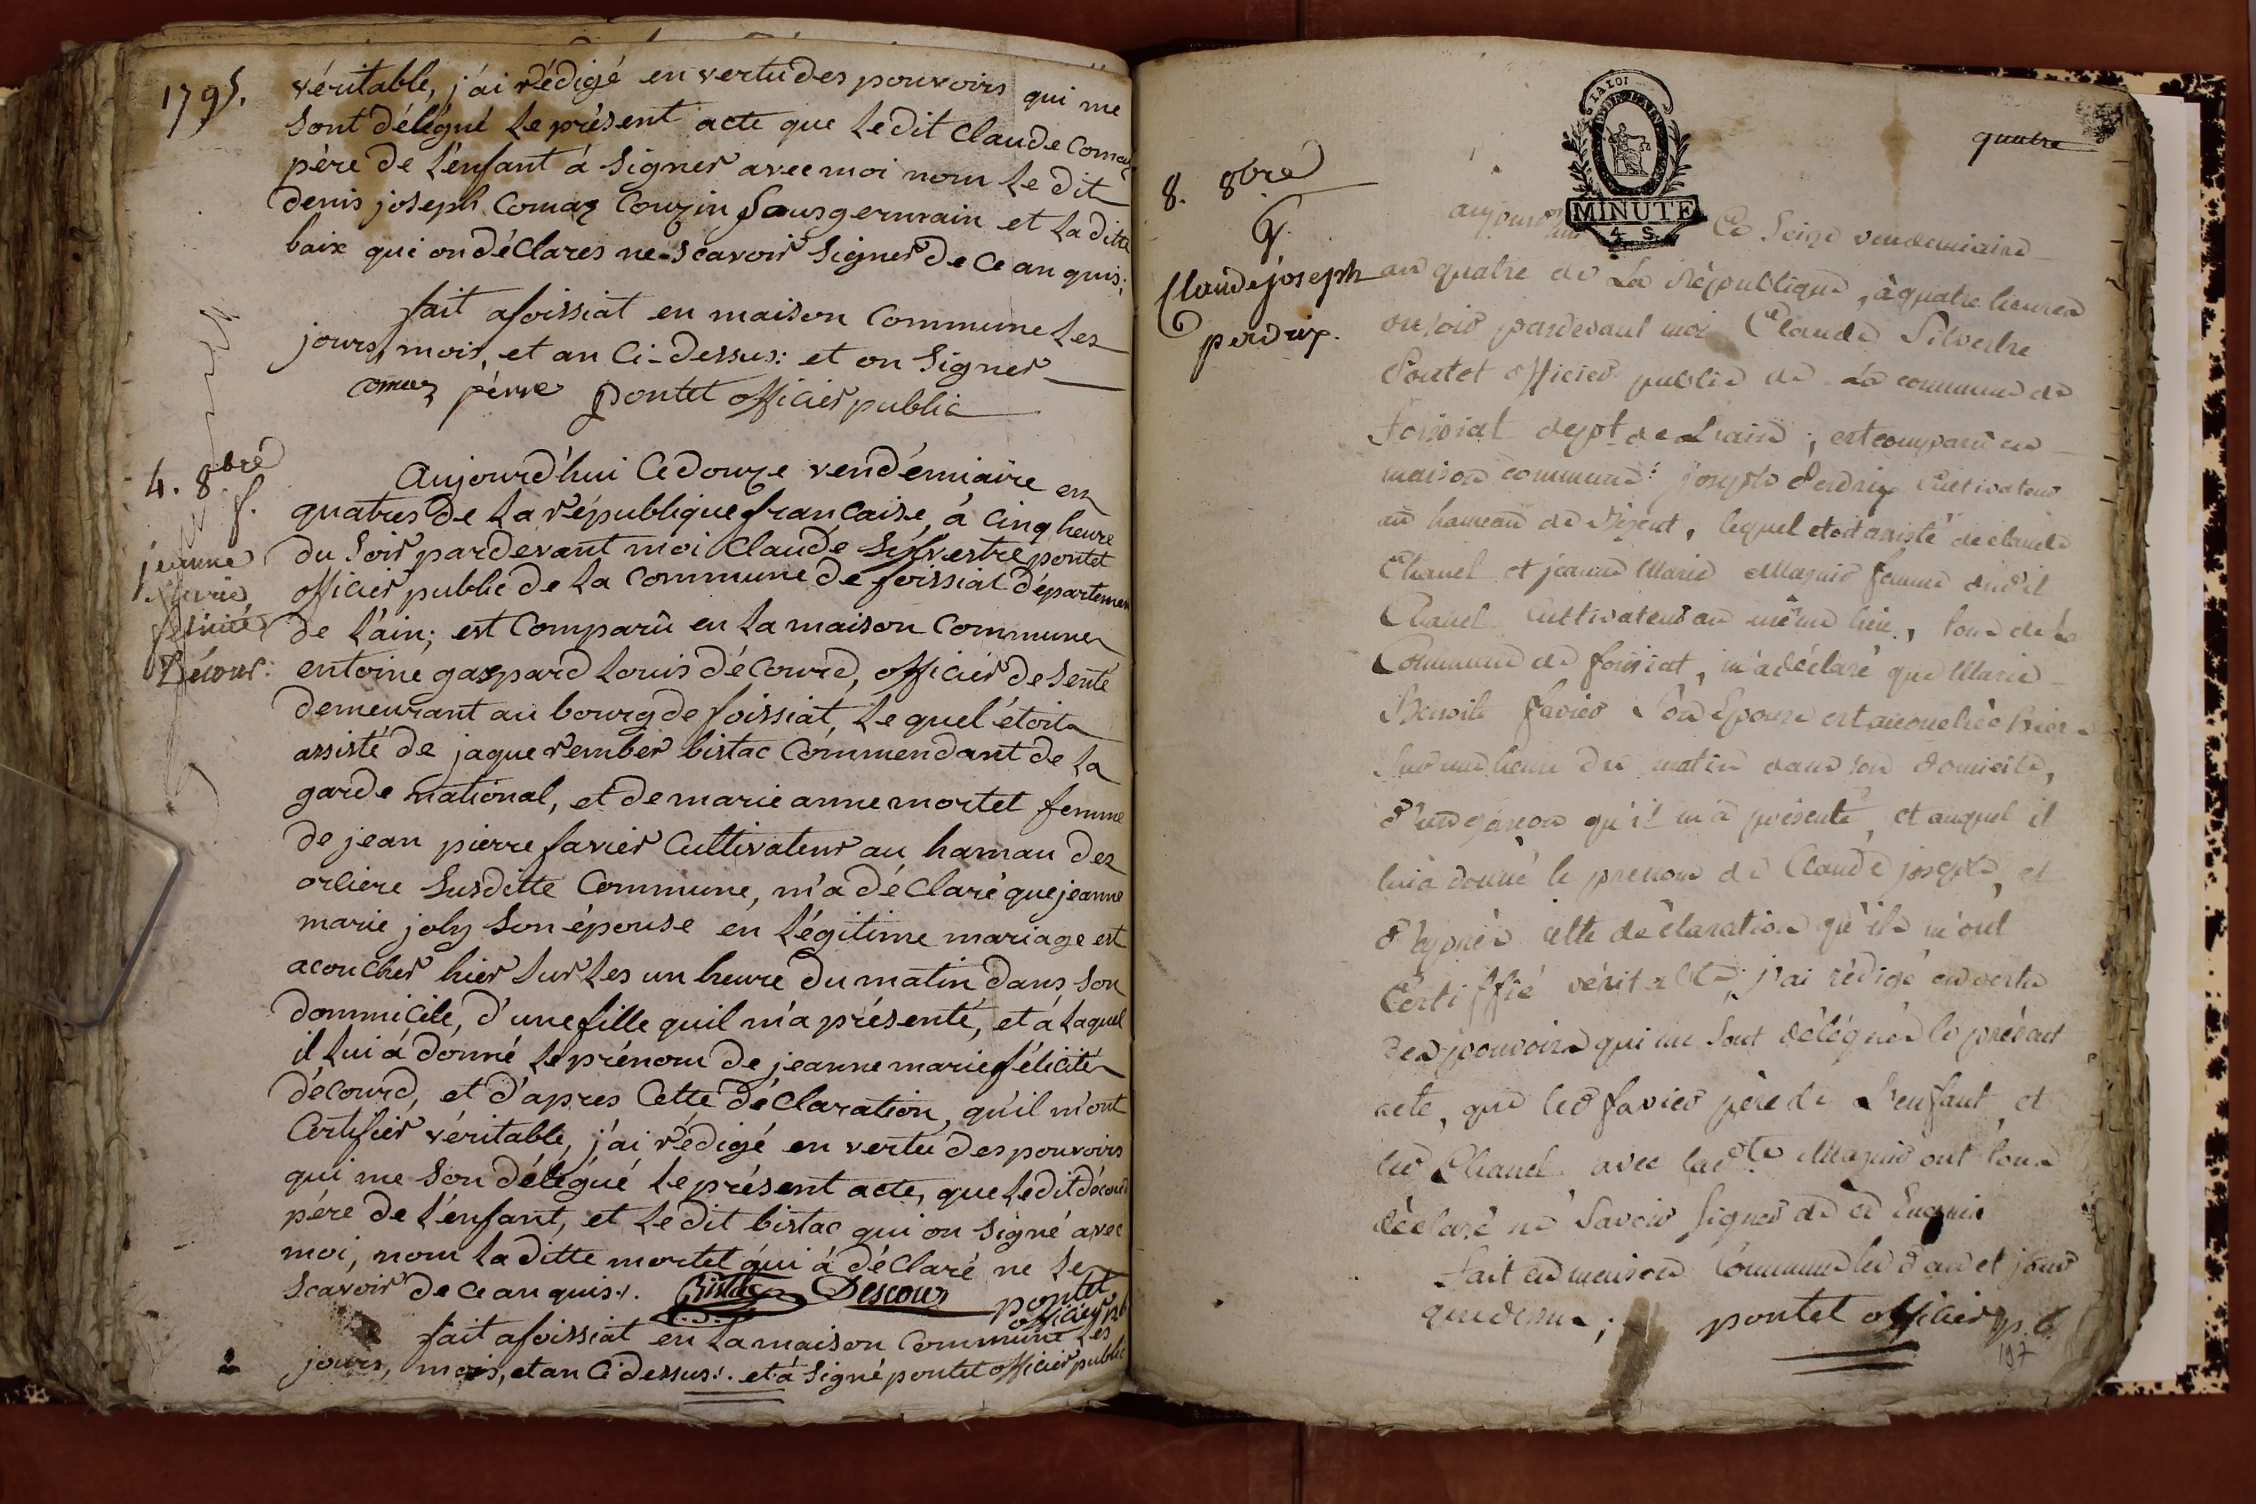 1795.
véritable, j'ai rédigé en vertu des pouvoirs qui me
sont délégué le présent acte que ledit claude comaz
père de l'enfant à signer avec moi nom le dit
denis joseph comaz couzin sousgermain et la ditte
baix qui on déclares ne scavoir signer de ce an quis;
fait a foissiat en maison commune les
jours, mois, et an ci-dessus: et on signer
comaz pérre pontet officier public
4. 8bre
f.
jeanne
marie
félicité
Décour.
Aujourd'hui ce douze vendémiaire en
quatres de la république francaise, à cinq heure
du soir pardevant moi claude silvestre pontet
officier public de la commune de foissiat départemen
de l'ain; est comparû en la maison commune
entoine gaspard louis décourd, officier de senté
demeurant au bourg de foissiat, lequel étoit
assisté de jaque rember bistac commendant de la
garde national, et de marie anne mortet femme
de jean pierre favier cultivateur au hamau des
orliere susditte commune, m'a déclaré que jeanne
marie joly son épouse en légitime mariage est
acoucher hier sur les un heure du matin dans son
dommicile, d'une fille quil m'a présenté, et à laquel
il lui à donné le prénom de jeanne marie félicité
décourd, et d'apres cette déclaration, qu'il m'ont
certifier véritable, j'ai rédigé en vertu des pouvoirs
qui me son délégué le présent acte, que ledit décour
pére de l'enfant, et ledit bistac qui on signé avec
moi, nom la ditte mortet qui à déclaré ne le
scavoir de ce an quis. Bistac Descour pontet
officier pb
fait a foissiat en la maison commune les
jours, mois, et an ci dessus. et à signé pontet officier public
quatre
LA LOI
MINUTE
4 S.
8. 8bre
G.
Claude joseph
perdrix.
aujourd'hui Ce Seize vendemiaire
an quatre de La République, à quatre heures
du soir pardevant moi Claude Silvestre
Pontet officier public de la commune de
Foissiat dept de L'ain; est comparû en
maison commune: joseph Perdrix Cultivateur
au hameau de , lequel etoit assisté de claude
Chanel et jeanne Marie femme dudit
Chanel Cultivateur au même lieu, tous de la
Commune de foissiat, m'a déclaré que Marie
Benoite favier Son Epouse est accouchée hier
Sur une heure du matin dans son domicile,
d'un garçon qu'il m'a présenté, et auquel il
lui a donné le prenom de Claude joseph, et
d'après cette déclaration qu'ils m'ont
Certiffié véritable, j'ai rédigé en vertu
des pouvoirs qui me sont délégués le présent
acte, que led favier père de L'enfant, et
led Chanel avec lad.te ont tous
déclaré ne Savoir Signer de ce Enquis
Fait en maison Commune led an et jour
que dessus; pontet officier p.b.
197